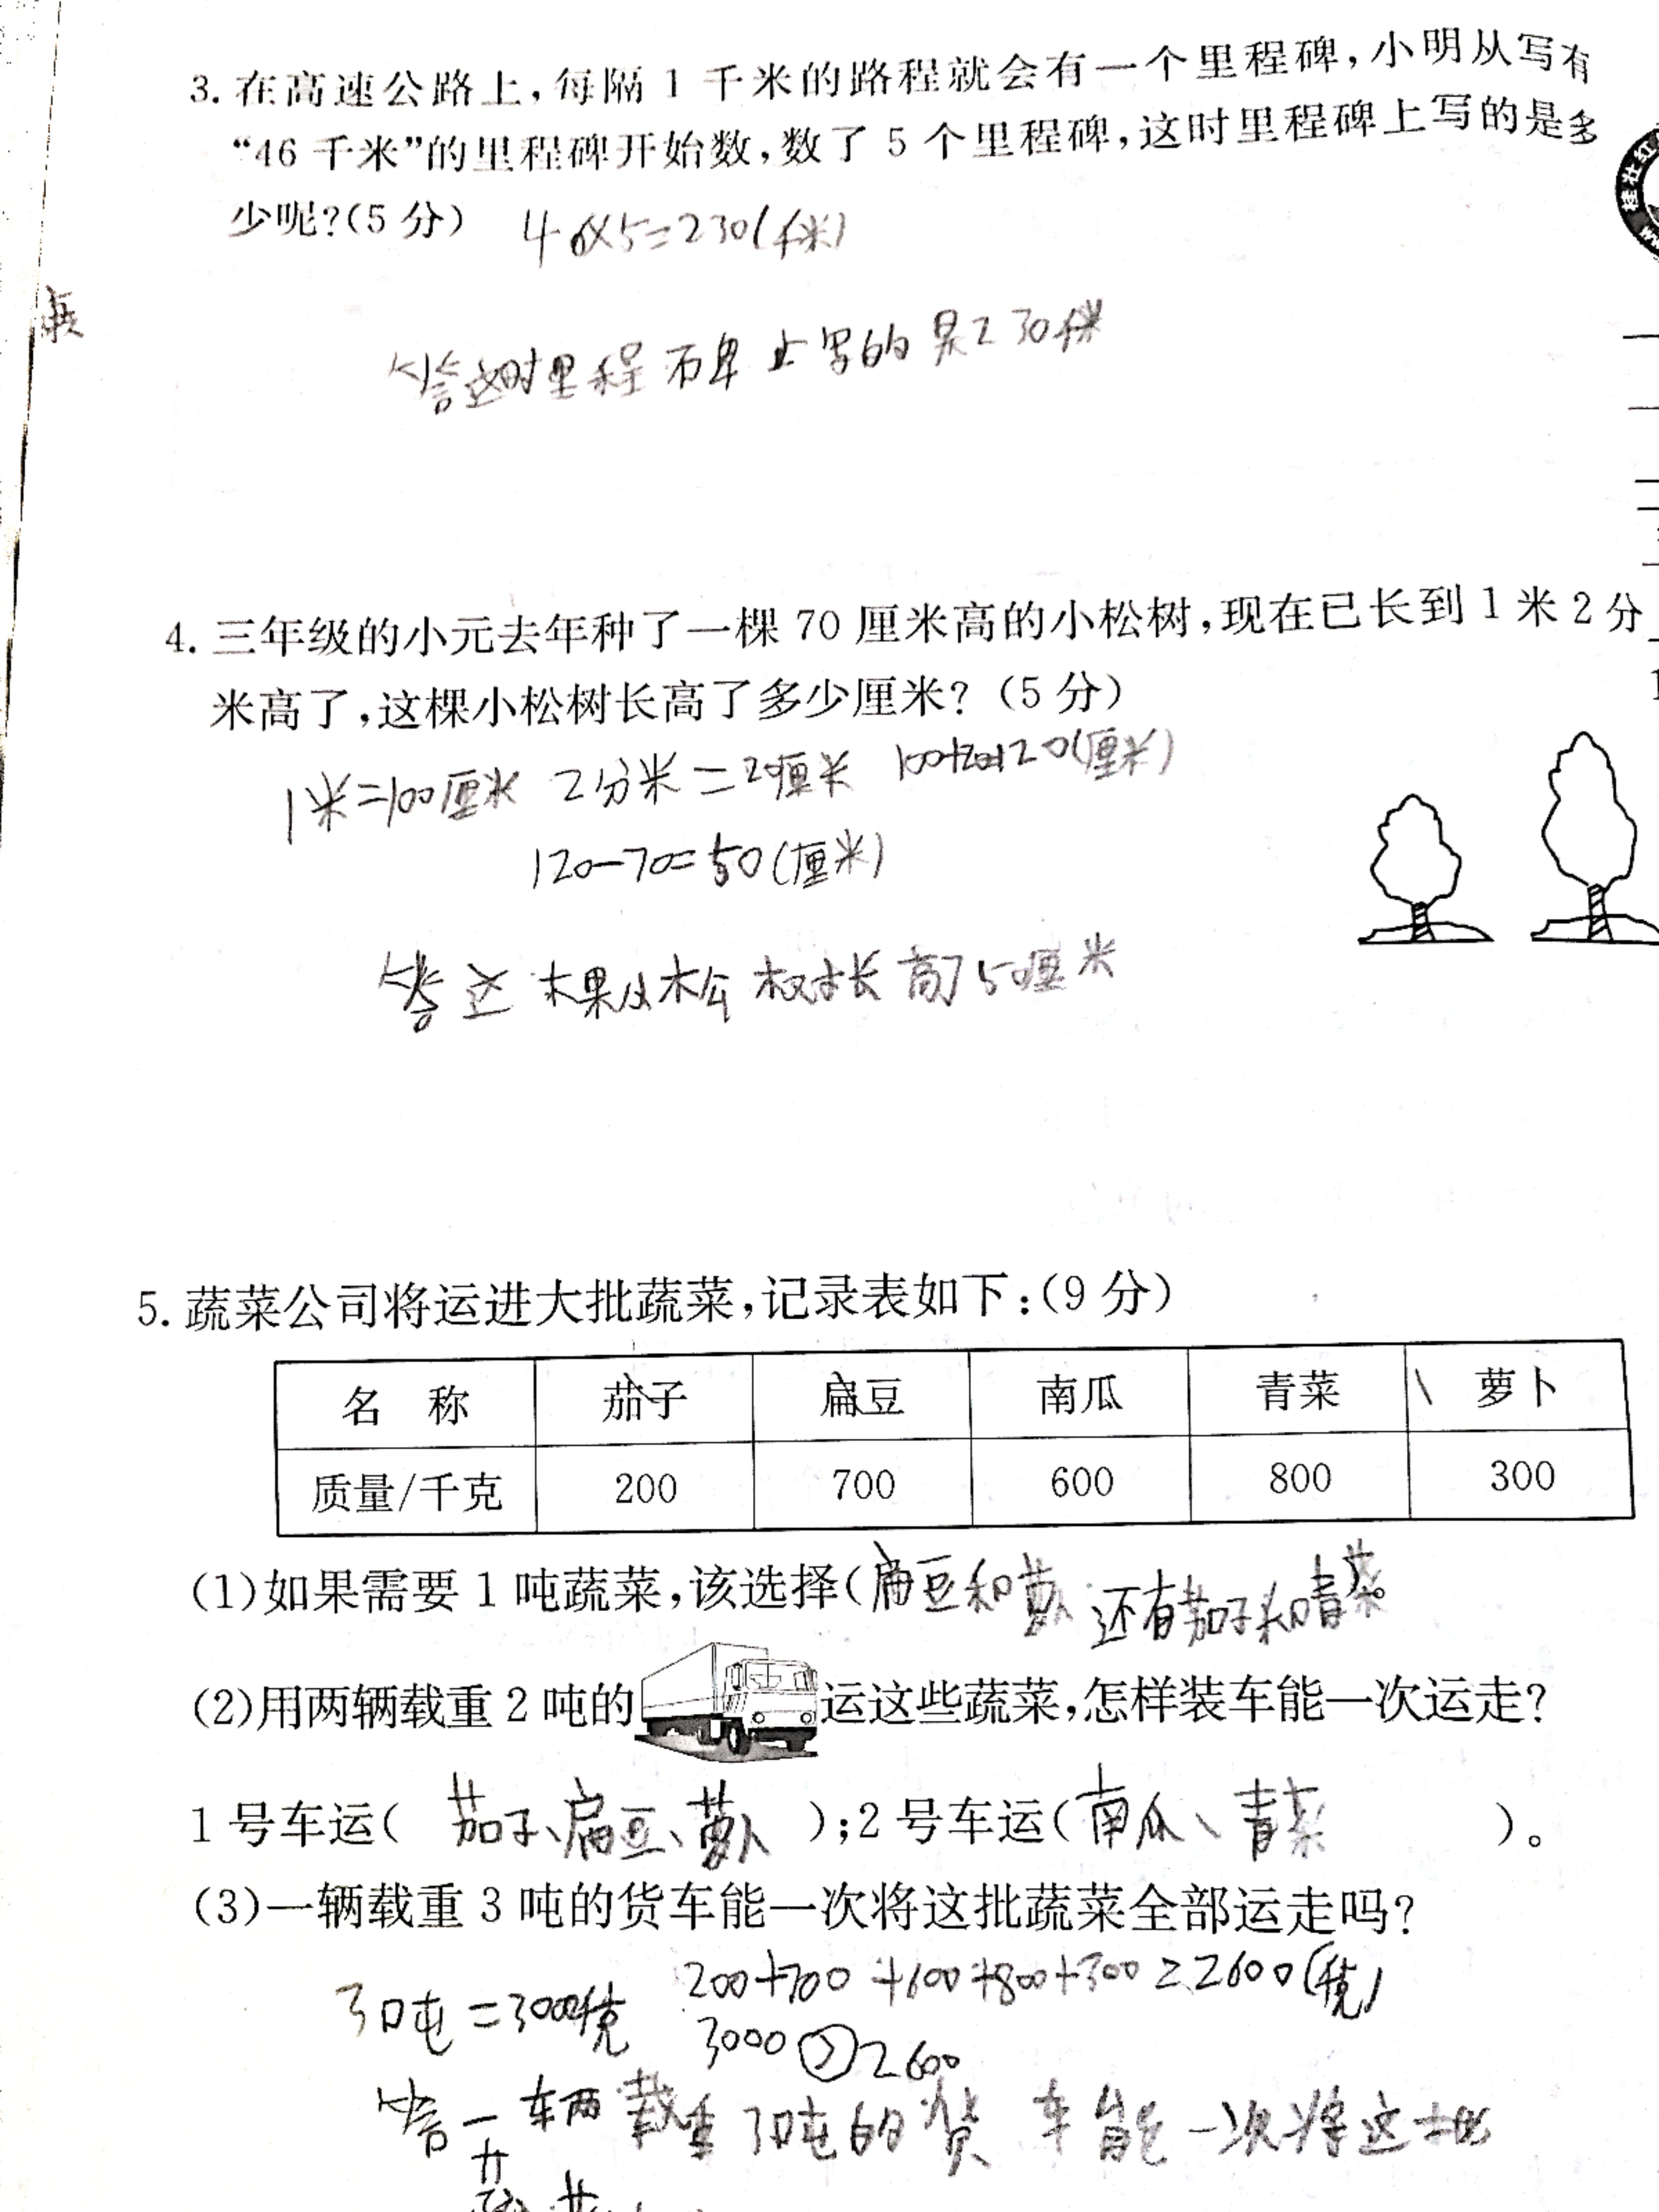 3. 在高速公路上,每隔 1 千米的路程就会有一个里程碑,小明从写有
“46 千米”的里程碑开始数,数了 5 个里程碑,这时里程碑上写的是多
少呢?(5 分)
46×5=230(千米)
答这时里程碑上写的是230千米
4. 三年级的小元去年种了一棵 70 厘米高的小松树,现在已长到 1 米 2 分
米高了,这棵小松树长高了多少厘米? (5 分)
1米=100厘米 2分米=20厘米 100+20=120(厘米)
120-70=50(厘米)
答这棵小松树长高了50厘米
5. 蔬菜公司将运进大批蔬菜,记录表如下:(9 分)
名 称 茄子 扁豆 南瓜 青菜 萝卜
质量/千克 200 700 600 800 300
(1)如果需要 1 吨蔬菜,该选择(扁豆和萝卜 还有茄子和青菜
(2)用两辆载重 2 吨的 运这些蔬菜,怎样装车能一次运走?
1 号车运( 茄子、扁豆、萝卜 );2 号车运(南瓜、青菜 )。
(3)一辆载重 3 吨的货车能一次将这批蔬菜全部运走吗?
200+700+600+800+300=2600(千克)
3吨=3000千克
3000>2600
答一辆载重3吨的货车能一次将这批
桂壮红